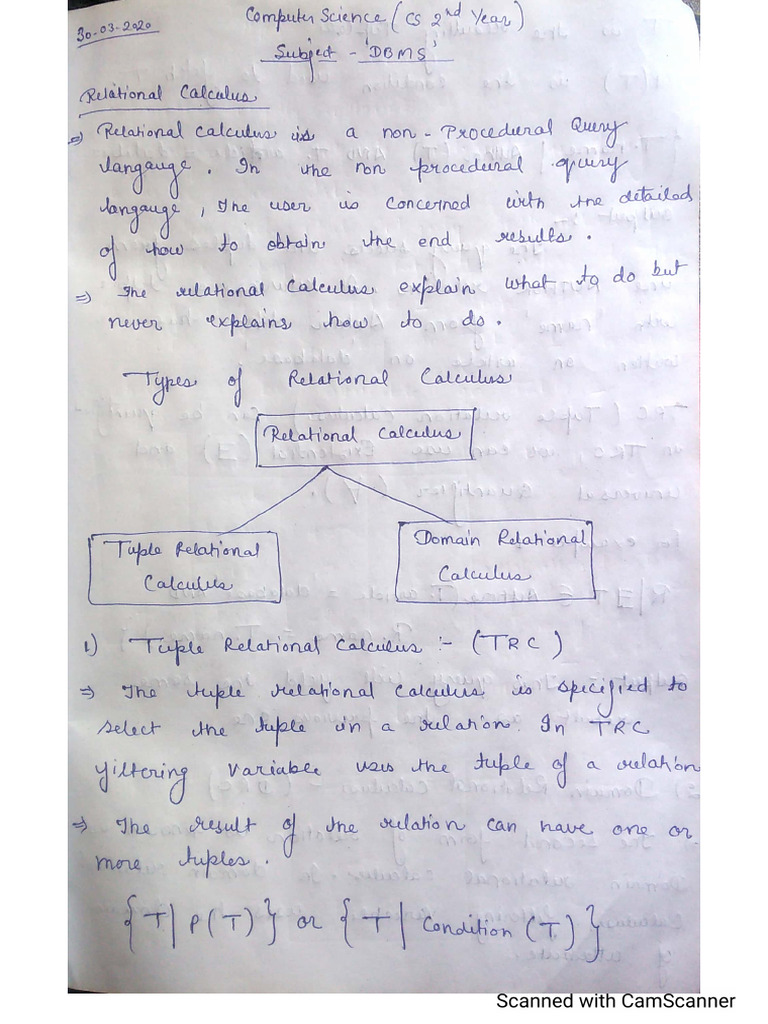 30-03-2020
Computer Science (CS 2nd Year)
Subject - 'DBMS'
Relational Calculus
⇒ Relational calculus is a non-Procedural Query
langauge. In the non procedural query
langauge, The user is concerned with the detailed
of how to obtain the end results.
⇒ The relational calculus explain what to do but
never explains how to do.
Types of Relational Calculus
Relational Calculus
Tuple Relational
Calculus
Domain Relational
Calculus
1) Tuple Relational Calculus :- (TRC)
⇒ The tuple relational calculus is specified to
select the tuple in a relation. In TRC
filtering variable uses the tuple of a relation
⇒ The result of the relation can have one or
more tuples.
{T| P(T)} or {T| Condition (T)}
Scanned with CamScanner